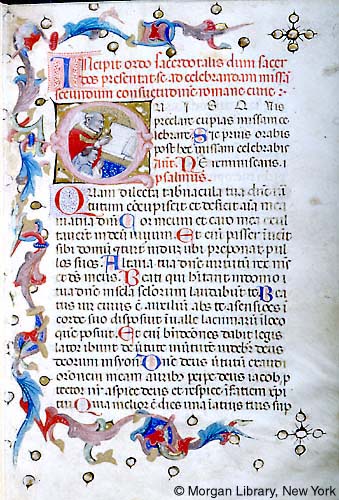 Incipit ordo sacerdotalis dum sacer
dos presentat se ad celebrandam missa
secundum consuetudine romane curie
SI QVIS
precelare cupias missam ce
lebrare. Sic prius orabis
post hec missam celebrabis
Ant. Ne reminiscaris.
psalmus.
Quam dilecta tabnacula tua
tutum cocupiscit et deficit aia mea
in atria dni Cor meum et caro mea exul
taverit in deum vivum. Et eni passer ivenit
sibi domu
Altaria tua dne virtutu rex me
et ds meus. Beati qui hitant in domo
tua dne in secla seclorum laudabut te. Be
tus vir cuius e auxiliu abs te asensioes i
corde suo disposuit i valle lacrimaru i loco
que posuit. Et eni bndictoes dabit legis
lator ibunt de virtute i virtute videbit ds
deorum in syon. Dne deus virtutu exaudi
oronem meam auribus percipe deus iacob
tector nr aspice deus et respice i faciem xpi
tui Quia melior e dies una i atriis tuis sup
© Morgan Library, New York